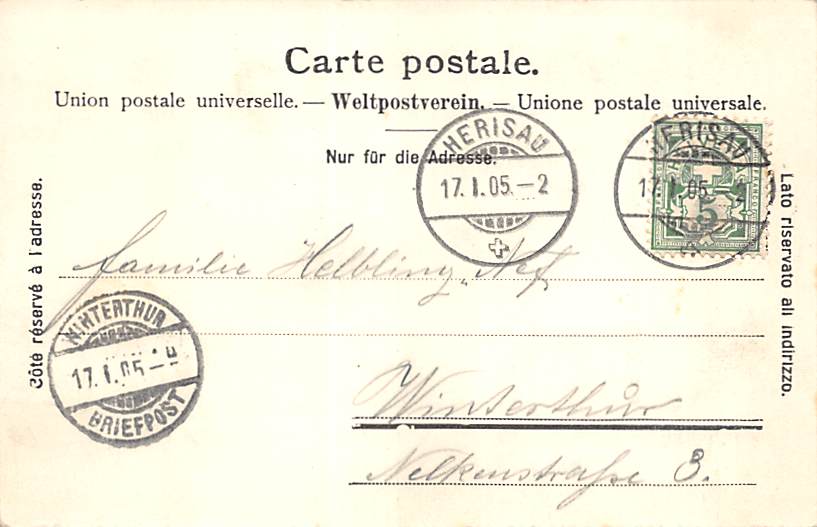 Carte postale.
Union postale universelle. — Weltpostverein. — Unione postale universale.
Nur für die Adresse.
HERISAU
17. I. 05. – 2
HERISAU
17. I. 05. 2
FRANCO
5
Côté réservé à l'adresse.
Lato riservato all indirizzo.
Familie Helbling-Nef
WINTERTHUR
17. I. 05. –
BRIEFPOST
Winterthur
Nelkenstraße 3.